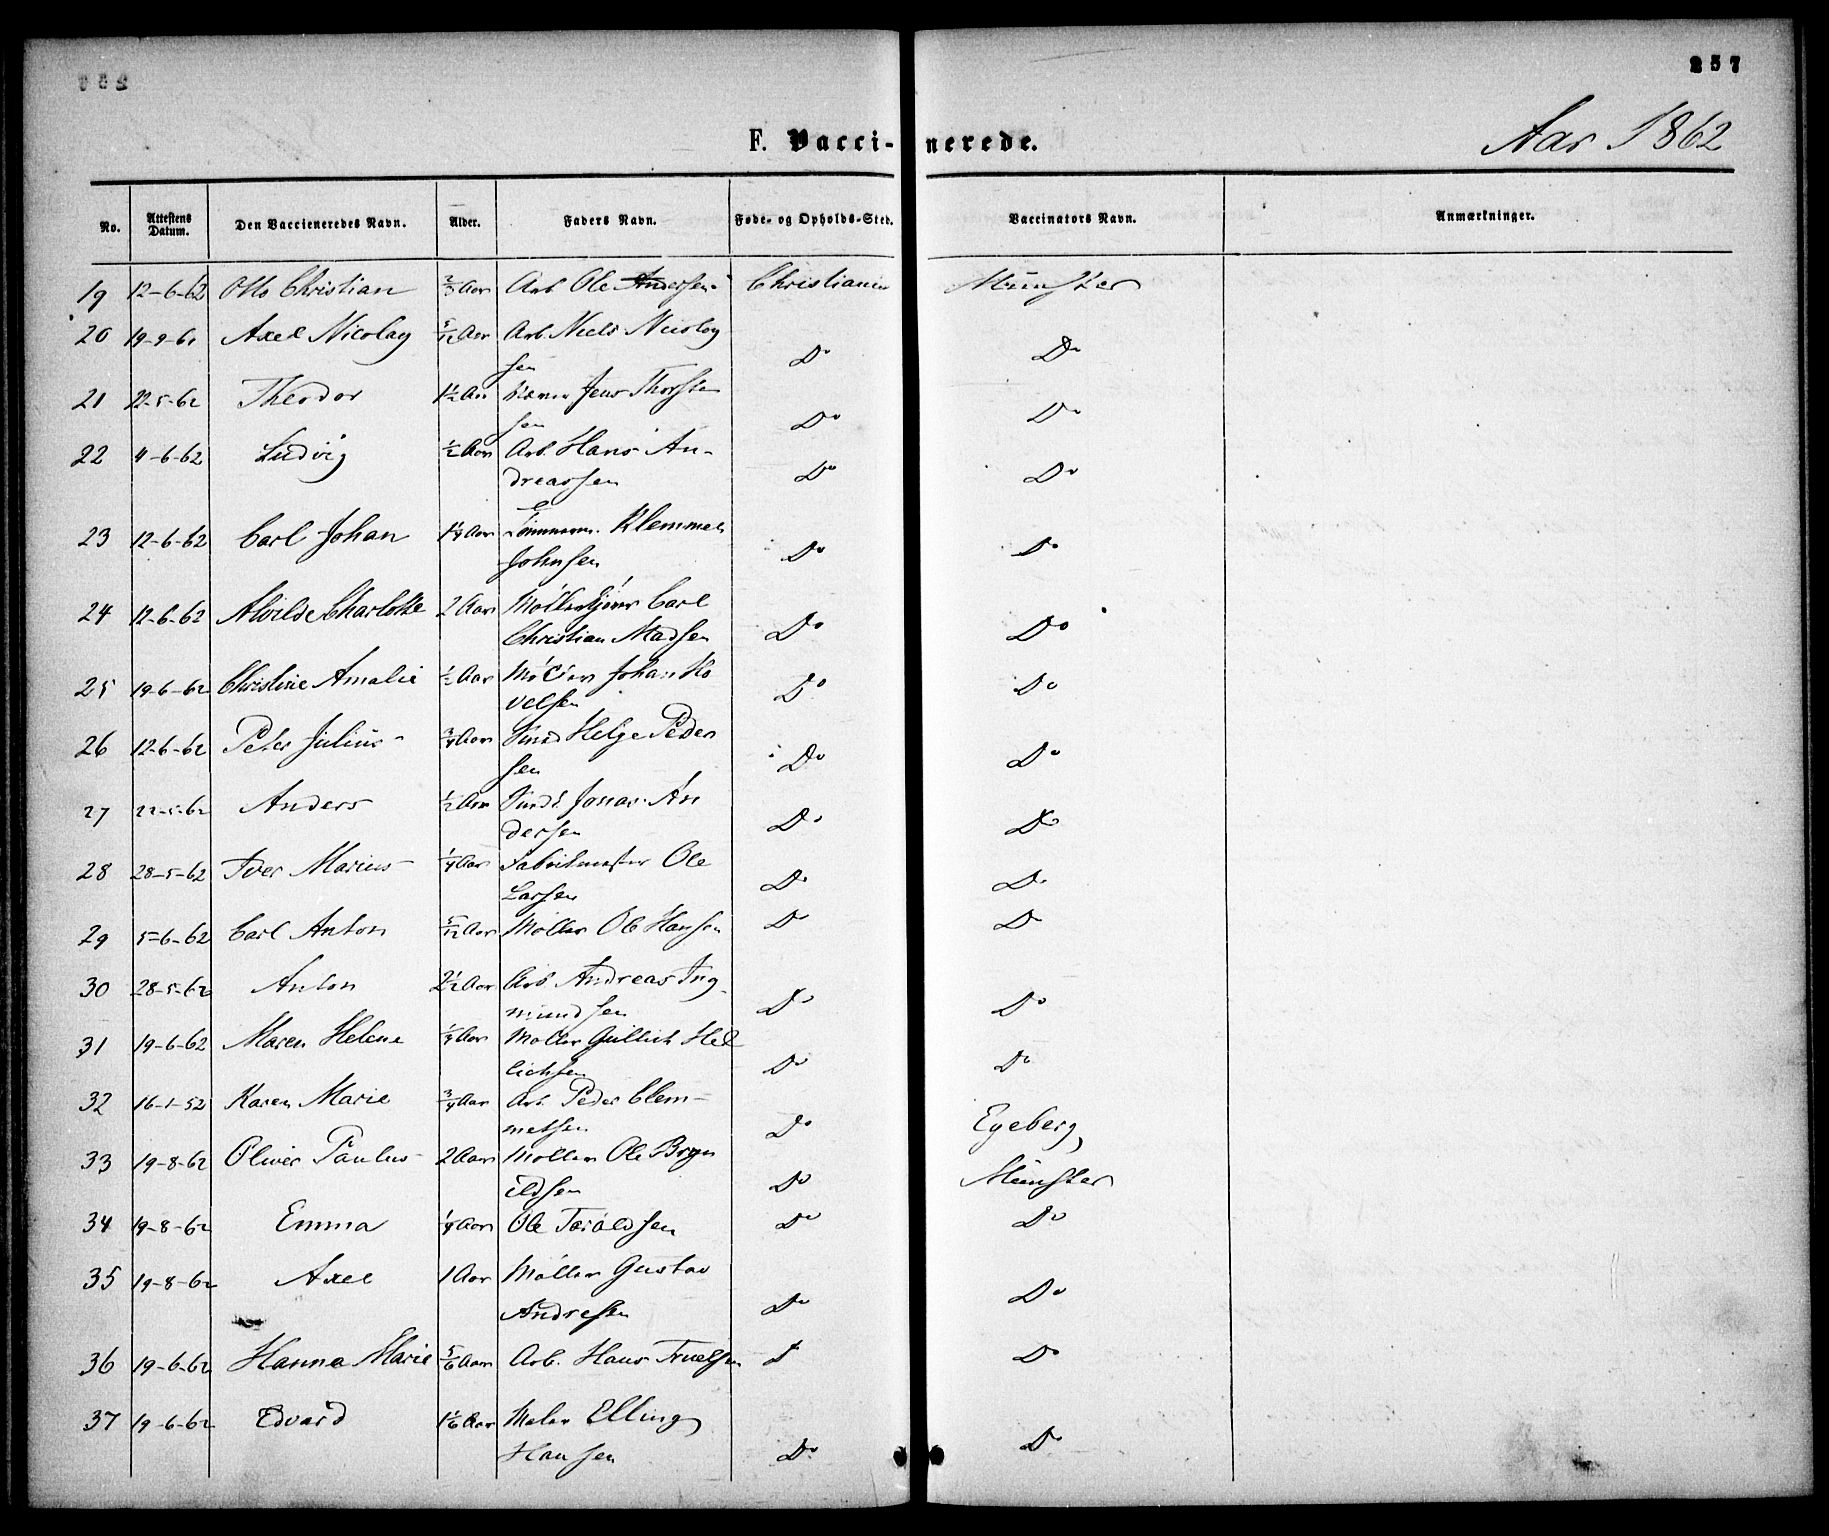 257
F. Vaccienerede.
Aar 1862
No. Attestens Datum. Den Vaccieneredes Navn. Alder. Faders Navn. Føde- og Opholds-Sted. Vaccinators Navn. Anmærkninger.
19 12-6-62 Otto Christian 2/3 Aar Arb Ole Andersen Christiania Münster
20 19-9-61 Axel Nicolay 5/12 Aar Arb. Niels Nicolay
sen Do Do
21 22-5-62 Theodor 1 1/2 Aar Jens Thorste
sen Do Do
22 4-6-62 Ludvig 1/2 Aar Arb. Hans An-
dreassen Do Do
23 12-6-62 Carl Johan 1 1/4 Aar Tømmerm. Klemmet
Johnsen Do Do
24 12-6-62 Alvilde Charlotte 2 Aar Møllergjører Carl
Christian Madsen Do Do
25 19-6-62 Christine Amalie 1/2 Aar Møller Johan Ho
velsen Do Do
26 12-6-62 Peter Julius 3/4 Aar Smed Helge Peder
sen Do Do
27 22-5-62 Anders 1/2 Aar Smed Jonas An
dersen Do Do
28 28-5-62 Iver Marius 1/4 Aar Fabrikmester Ole
Larsen Do Do
29 5-6-62 Carl Anton 5/12 Aar Møller Ole Hansen Do Do
30 28-5-62 Anton 2 1/2 Aar Arb Andreas Ing
mundsen Do Do
31 19-6-62 Maren Helene 1/4 Aar Møller Gullich Hel
lichsen Do Do
32 16-1-52 Karen Marie 3/4 Aar Arb. Peder Clem-
metsen Do Egeberg
33 19-8-62 Oliver Paulus 2 Aar Møller Ole Bryn
ildsen Do Münster
34 19-8-62 Emma 1/4 Aar Ole Taraldsen Do Do
35 19-8-62 Axel 1 Aar Møller Gustav
Andresen Do Do
36 19-6-62 Hanna Marie 5/6 Aar Arb. Hans Truelsen D Do
37 19-6-62 Edvard 1 1/6 Aar Maler Elling
Hansen Do Do